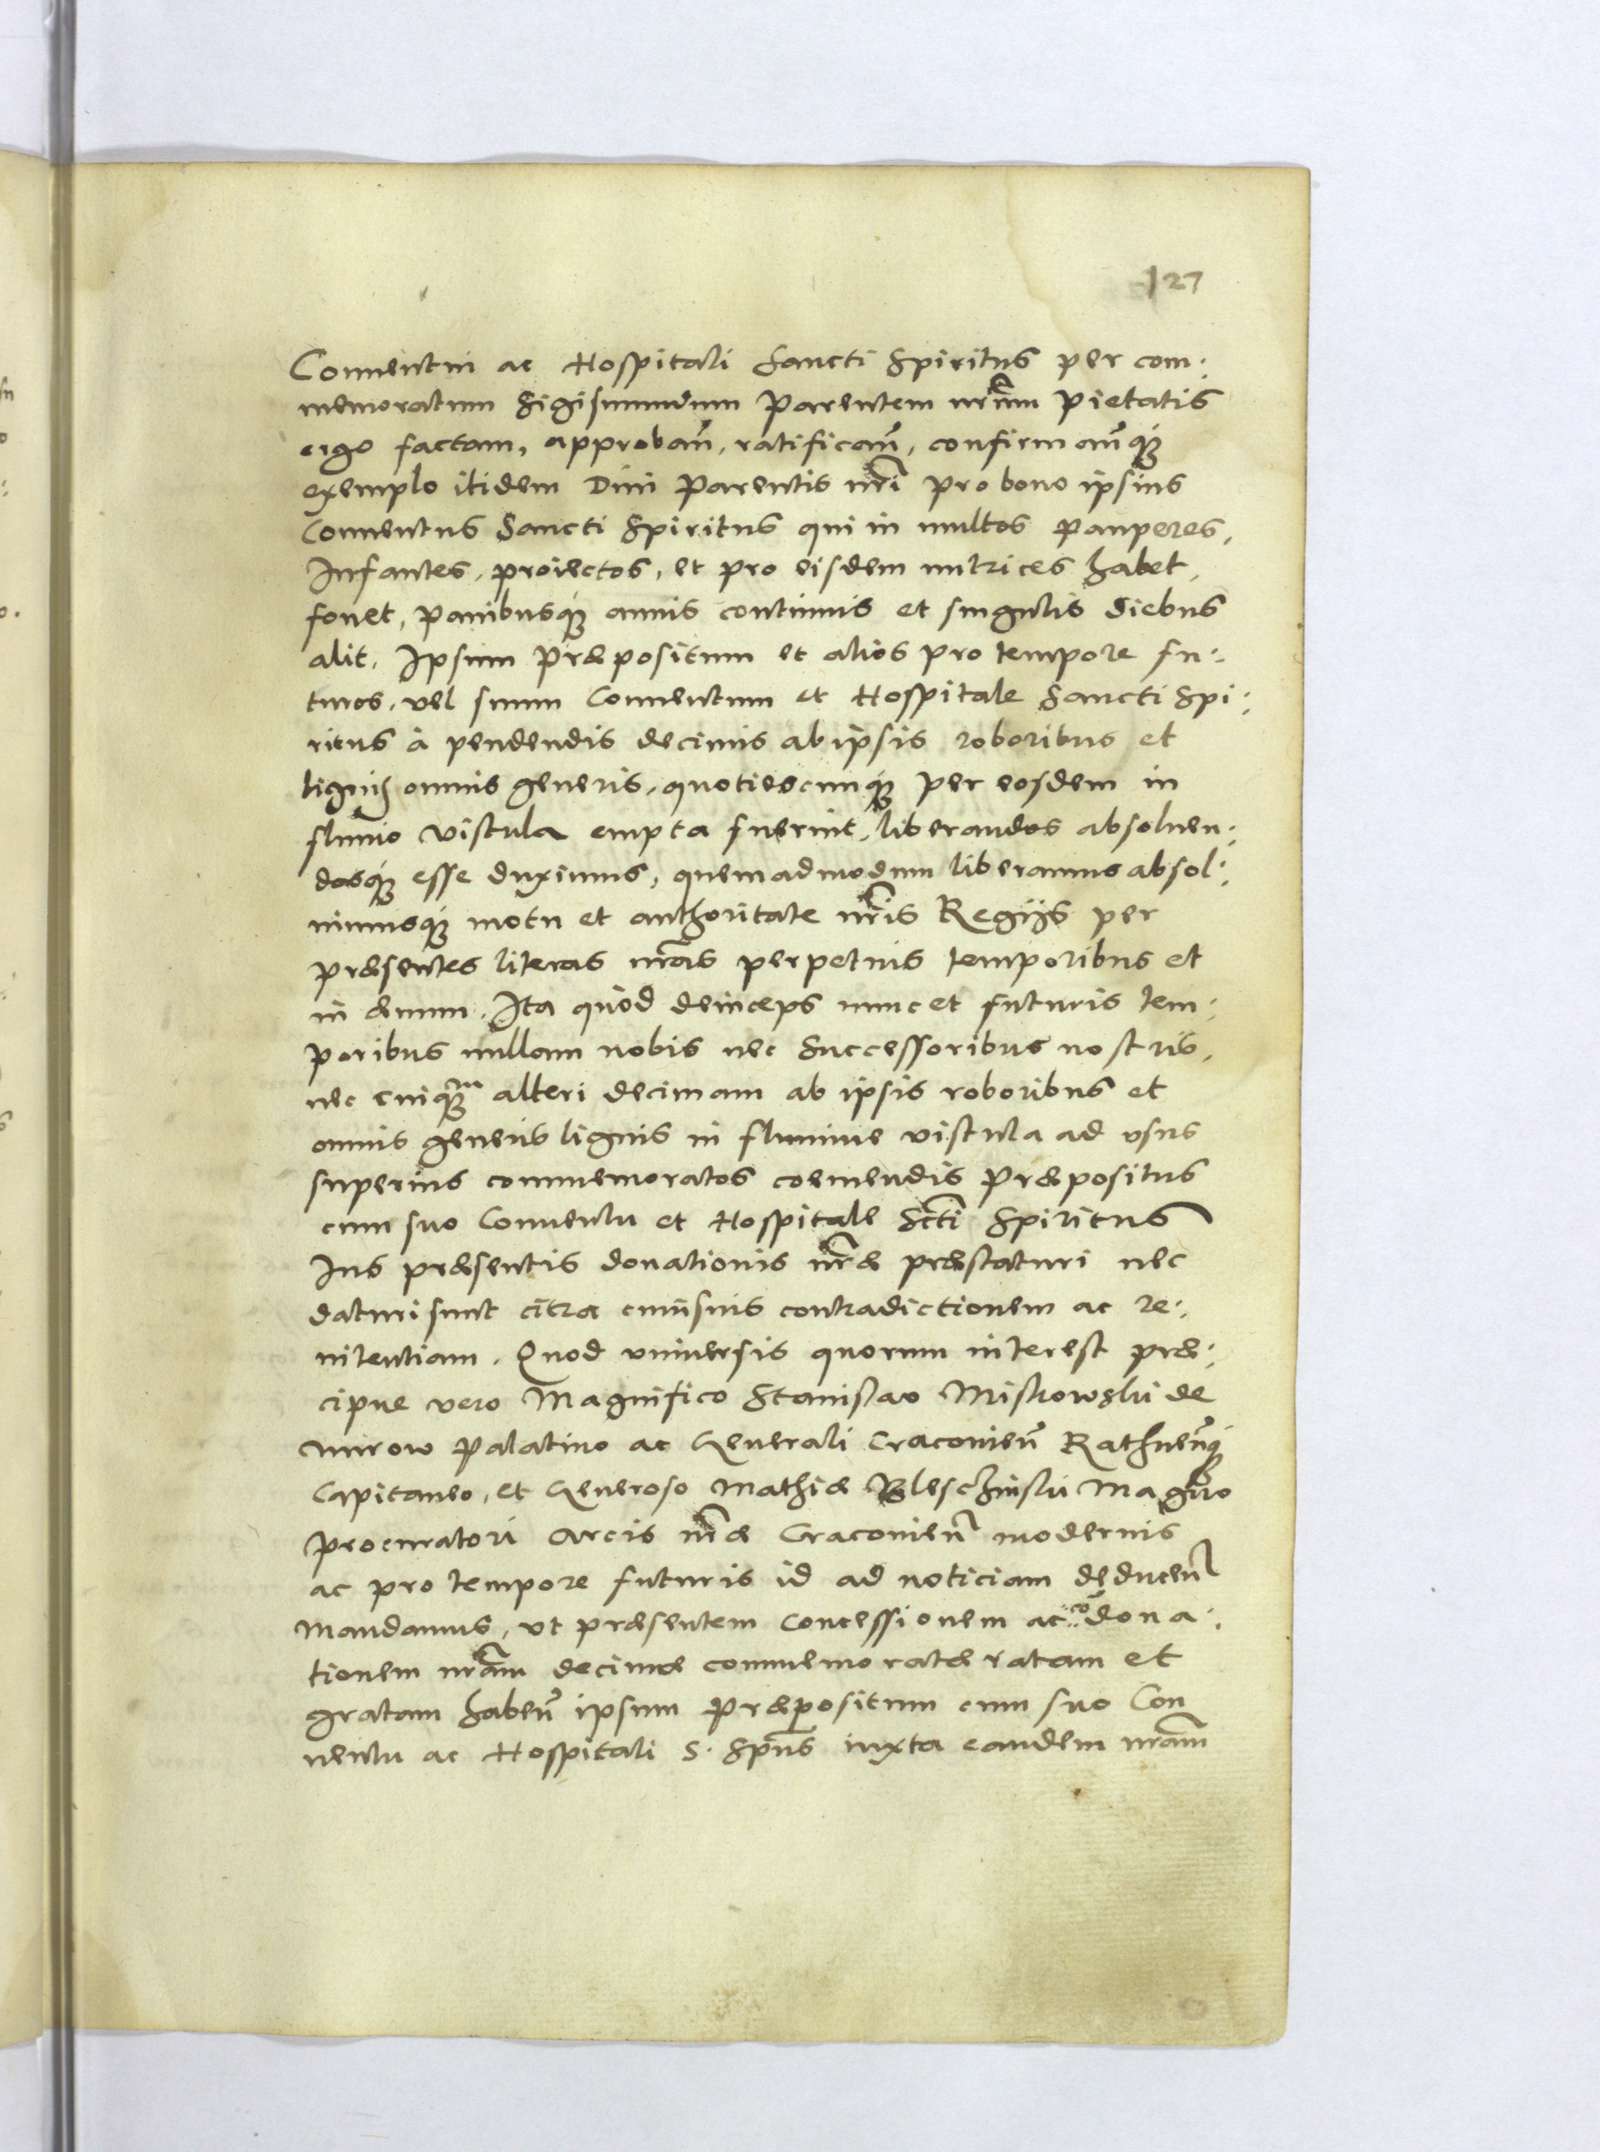 127
Conuentui ac Hospitali Sancti Spiritus per com:
memoratum Sigismundum Parentem nr̃um Pietatis
ergo factam, approbañ, ratificañ, confirmañq́
exemplo itidem Diui Parentis nr̃i pro bono ipsius
Conuentus Sancti Spiritus qui in multos Pauperes,
Infantes, proiectos, et pro eisdem nutrices habet,
fouet, panibusq́ annis continuis et singulis diebus
alit. Ipsum Præpositum et alios pro tempore fu:
turos, vel suum Conuentum et Hospitale Sancti Spi:
ritus à pendendis decimis ab ipsis roboribus et
lignis omnis generis, quotiescunq́ per eosdem in
fluuio Vistula empta fuerint, liberandos absoluen:
dosq́ esse duximus, quemadmodum liberamus absol:
uimusq́ motu et authoritate nr̃is Regijs per
præsentes literas nr̃as perpetuis temporibus et
in æuum. Ita quod deinceps nunc et futuris tem:
poribus nullam nobis nec Successoribus nostris,
nec cuiq́m alteri decimam ab ipsis roboribus et
omnis generis lignis in flumine vistula ad vsus
superius commemoratos coemendis Præpositus
cum suo Conuentu et Hospitale Scti Spiritus
Ius præsentis donationis nr̃æ præstaturi nec
daturi sunt citra cuiusuis contradictionem ac re:
nitentiam. Quod vniuersis quorum interest præ:
cipue vero Magnifico Stanislao Miskowski de
Mirow Palatino ac Generali Cracovieñ Rathneñq́
Capitaneo, et Generoso Mathiæ Bleschinski Magno
Procuratori Arcis nr̃æ Cracovieñ modernis
ac pro tempore futuris id ad noticiam deduceñ
Mandamus, vt præsentem Concessionem ac codona:
tionem nr̃am decimæ commemoratæ ratam et
gratam habeñ ipsum Præpositum cum suo Con
uentu ac Hospitali S. Sp̃us iuxta eandem nr̃am